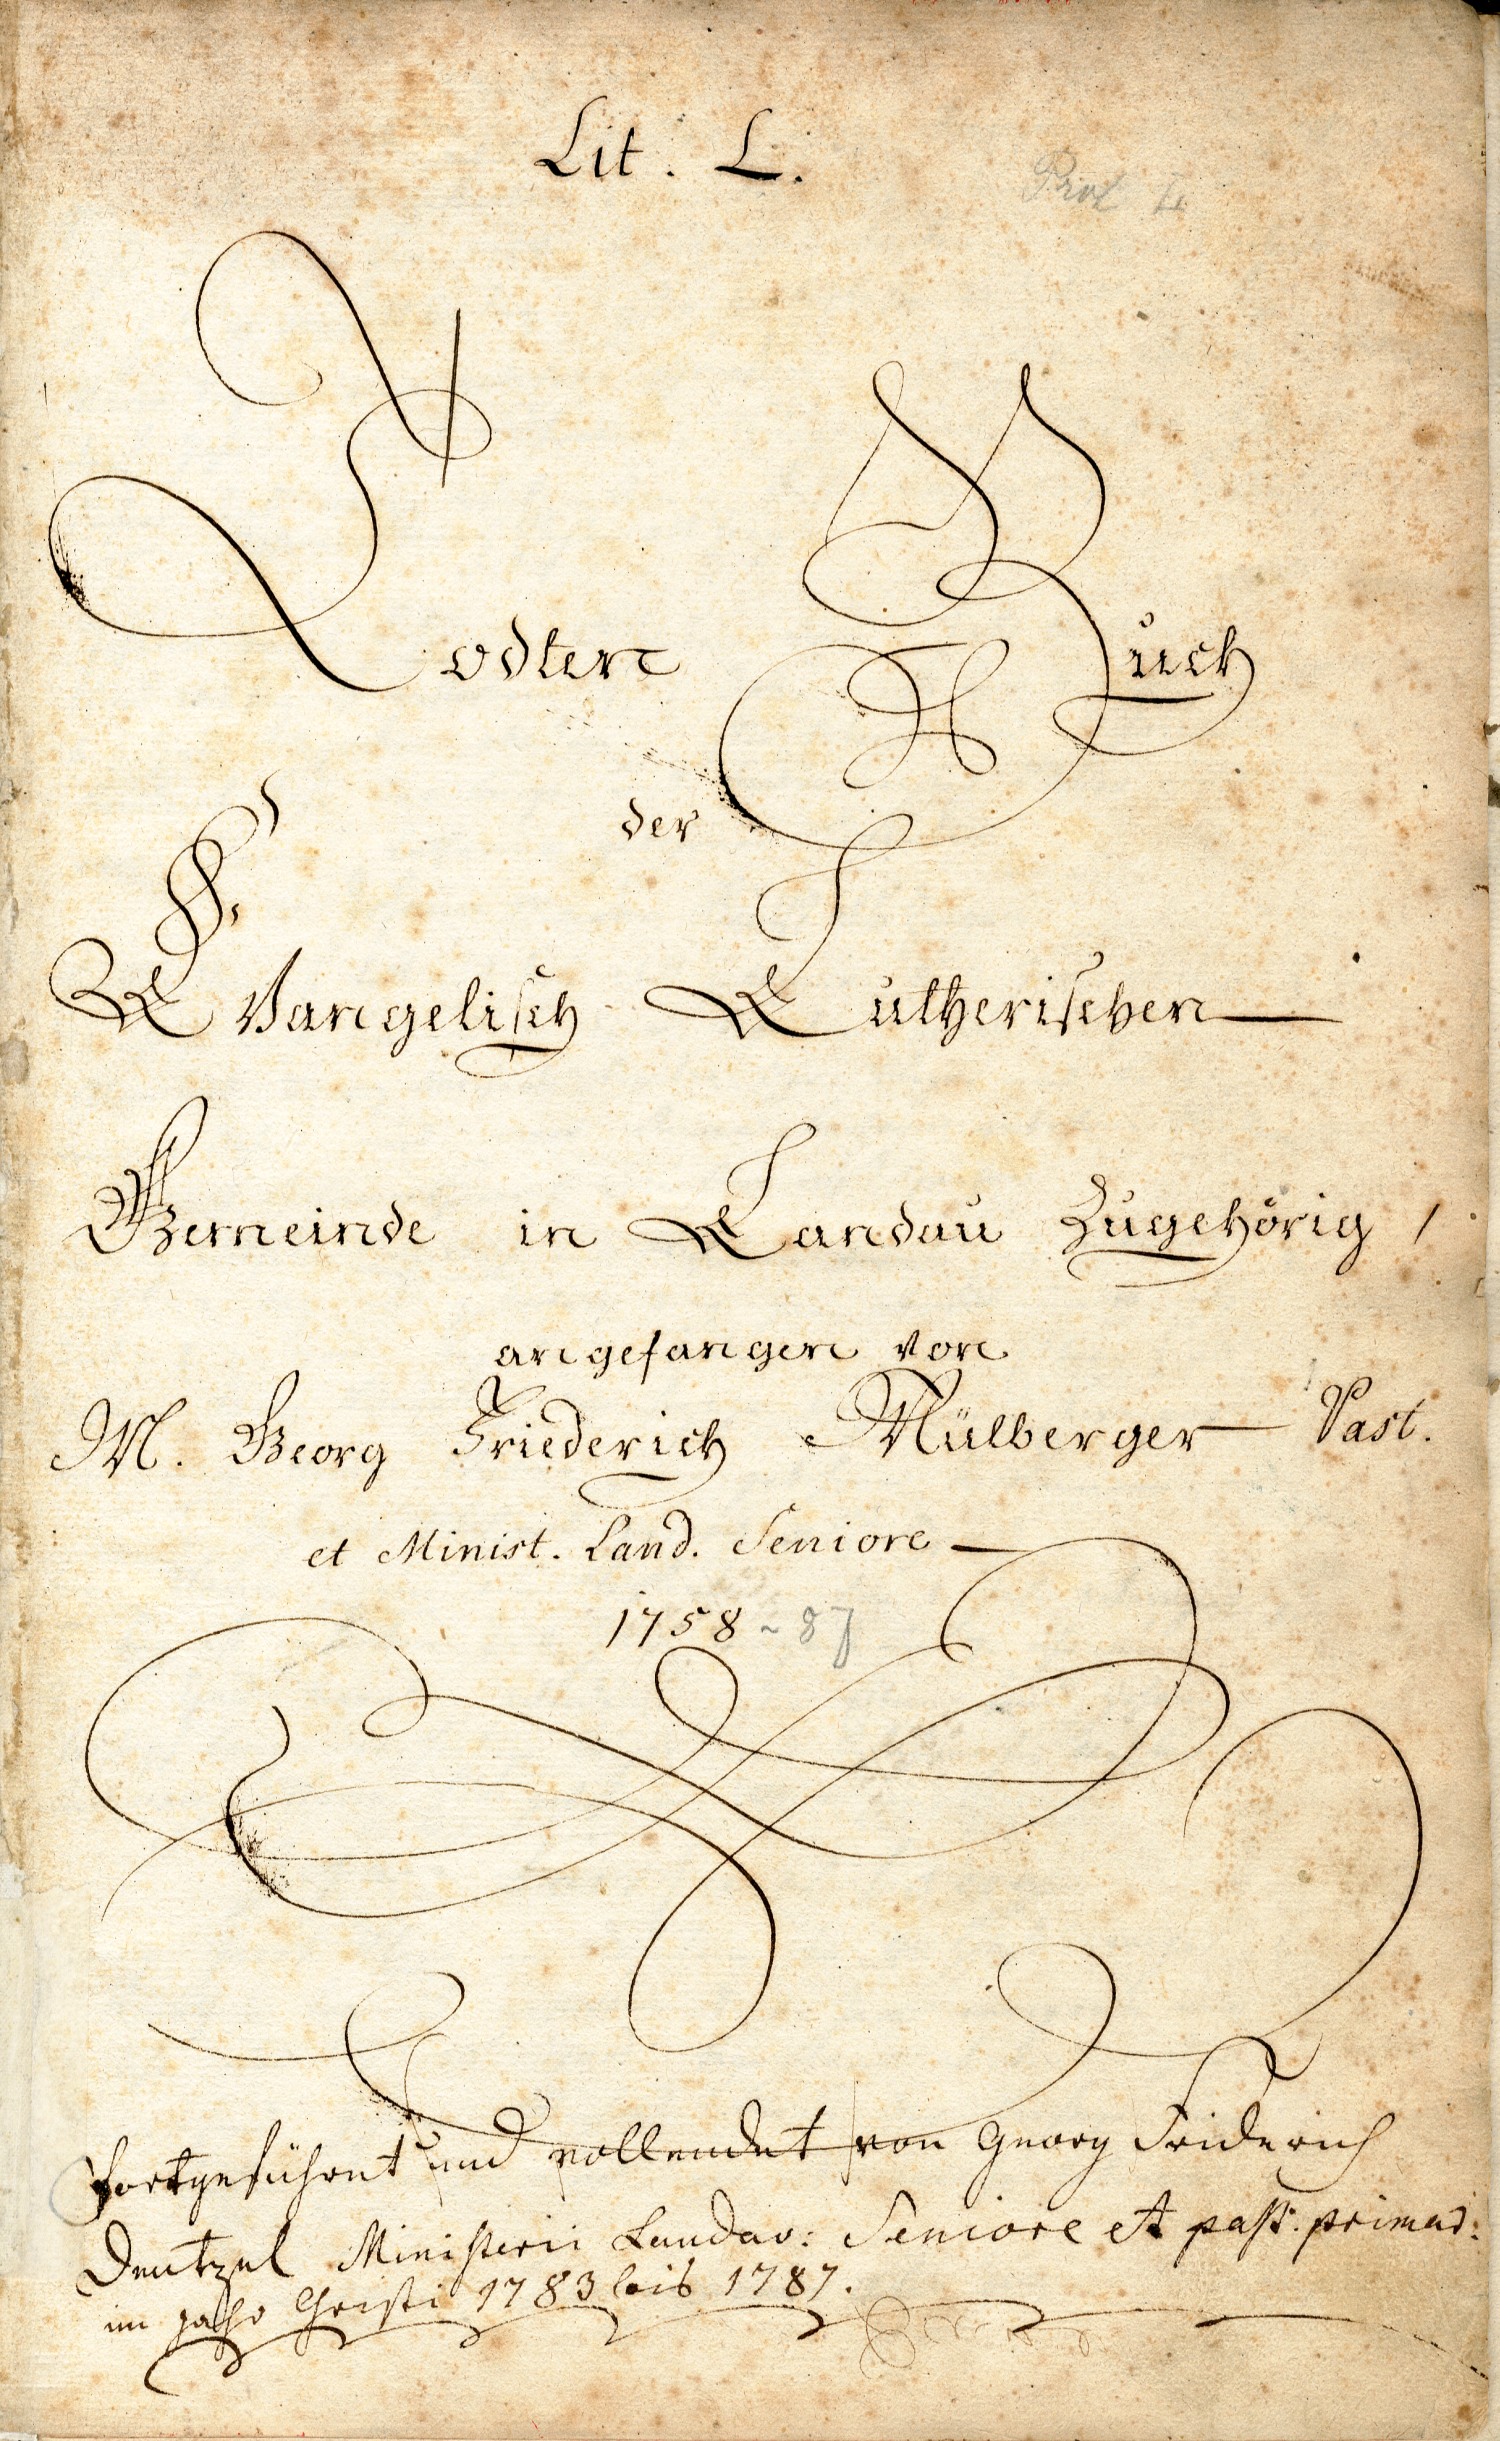 Lit. L.
Todten Buch
der
Evangelisch Lutherischen
Gemeinde in Landau Zugehörig /
angefangen von
M. Georg Friederich Mülberger Past.
et Minist. Land. Seniore
1758 ~ 87
fortgeführet und vollendet von Georg Friderich
Deutzel Ministerii Landav: Seniore et past. primar:
im Jahr Christi 1783 bis 1787.